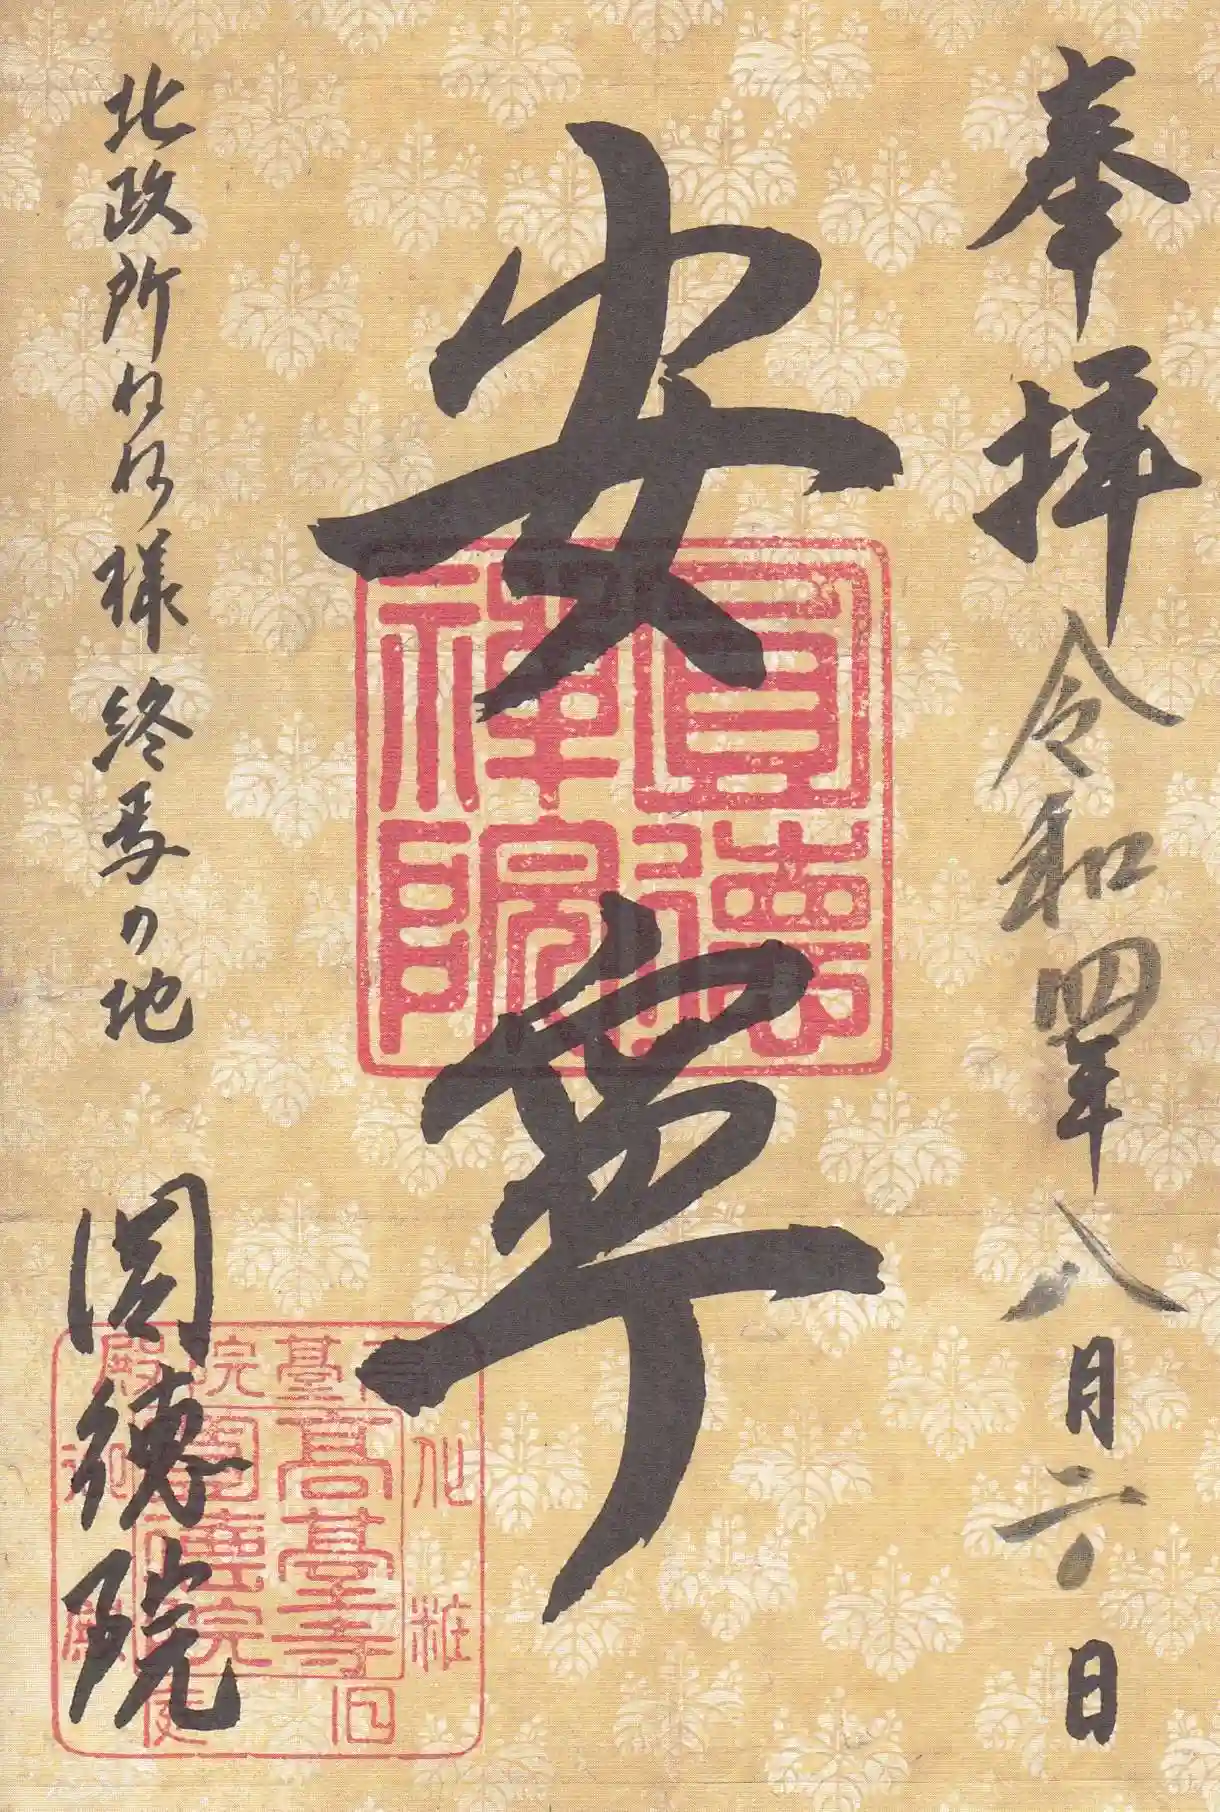 奉拝 令和四年八月二六日
安寧
圓徳禅院
北政所ねね様終焉の地
圓徳院
高臺寺
圓徳院
高臺院
化粧